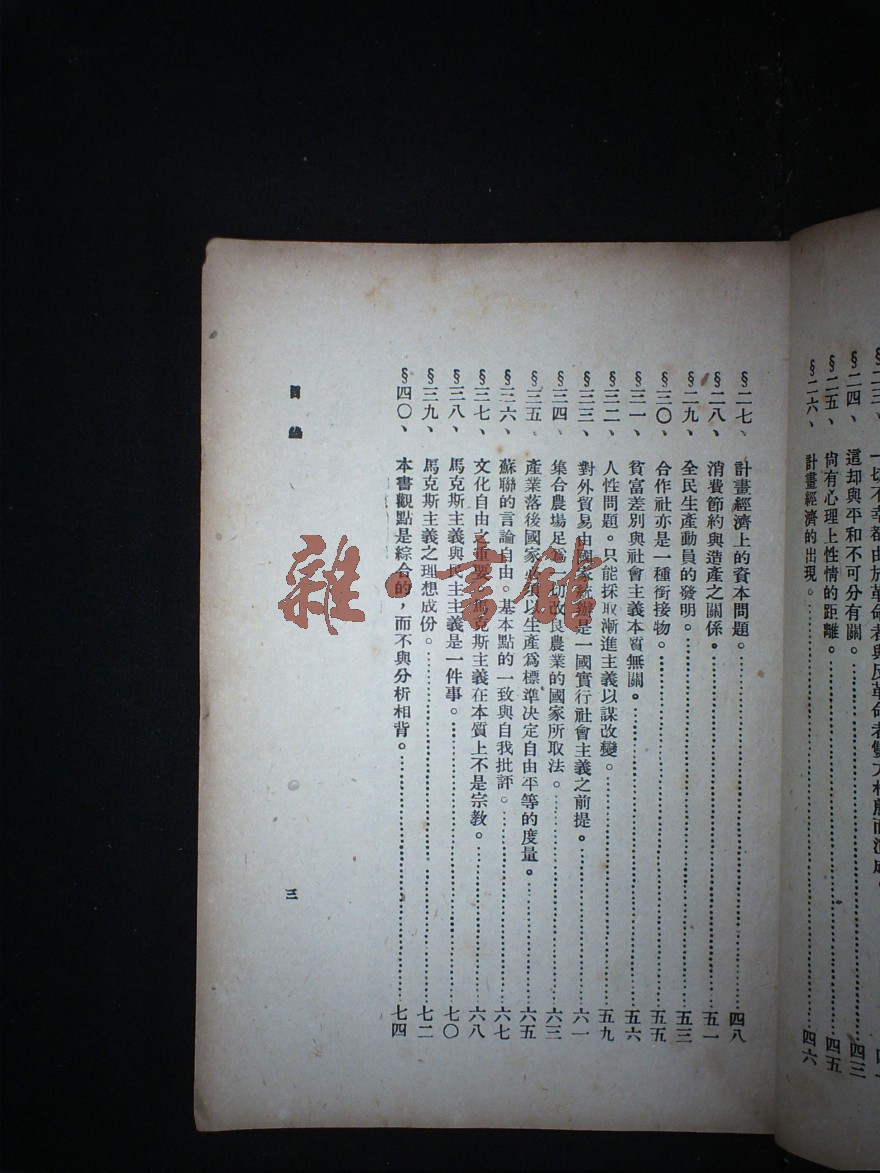 §二三、一切不幸都由於革命者與反革命者雙方相激而演成。
§二四、這却與平和不可分有關。……四三
§二五、尙有心理上性情的距離。……四五
§二六、計畫經濟的出現。……四六
§二七、計畫經濟上的資本問題。……四八
§二八、消費節約與造產之關係。……五一
§二九、全民生產動員的發明。……五三
§三〇、合作社亦是一種銜接物。……五五
§三一、貧富差別與社會主義本質無關。……五六
§三二、人性問題。只能採取漸進主義以謀改變。……五九
§三三、對外貿易由國家統辦是一國實行社會主義之前提。……六一
§三四、集合農場足爲一切改良農業的國家所取法。……六三
§三五、產業落後國家必須以生產爲標準決定自由平等的度量。……六五
§三六、蘇聯的言論自由。基本點的一致與自我批評。……六七
§三七、文化自由之重要。馬克斯主義在本質上不是宗教。……六八
§三八、馬克斯主義與民主主義是一件事。……七〇
§三九、馬克斯主義之理想成份。……七二
§四〇、本書觀點是綜合的，而不與分析相背。……七四
目錄
三
雜·書館